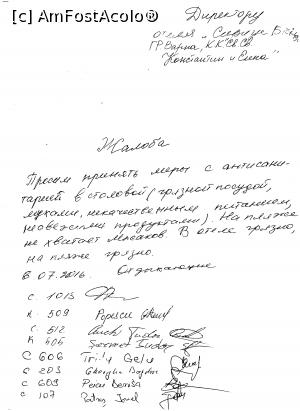 [c] AmFostAcolo®
Директору
отеля "Сириус Бийч"
гр Варна, К.К. Св.Св.
"Константин и Елена"
Жалоба
Просим принять меры с антисани-
тарией в столовой (грязной посудой,
мухами, некачественным питанием,
несвежими продуктами). На пляже
не хватает лежаков. В отеле грязно,
на пляже грязно.
6 07.2016. Отдыхающие
C 1015
K 509 Popescu
C 512 Tudor
K 606 Tudor
C 606 Gelu
C 203 Gheorghe Bogdan
C 609 Denisa
C 107